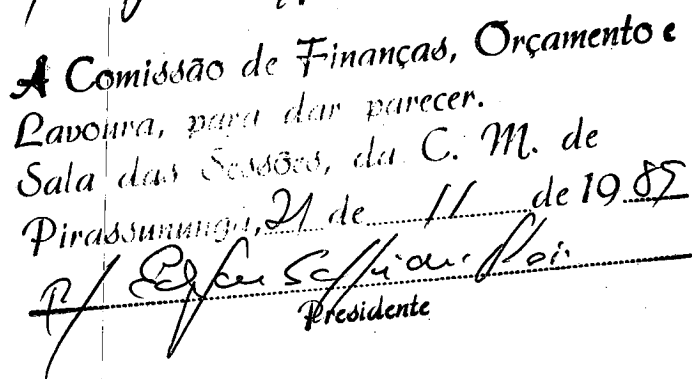 A Comissão de Finanças, Orçamento e
Lavoura, para dar parecer.
Sala das Sessões, da C. M. de
Pirassununga, 21 de 11 de 1985
P/
Presidente